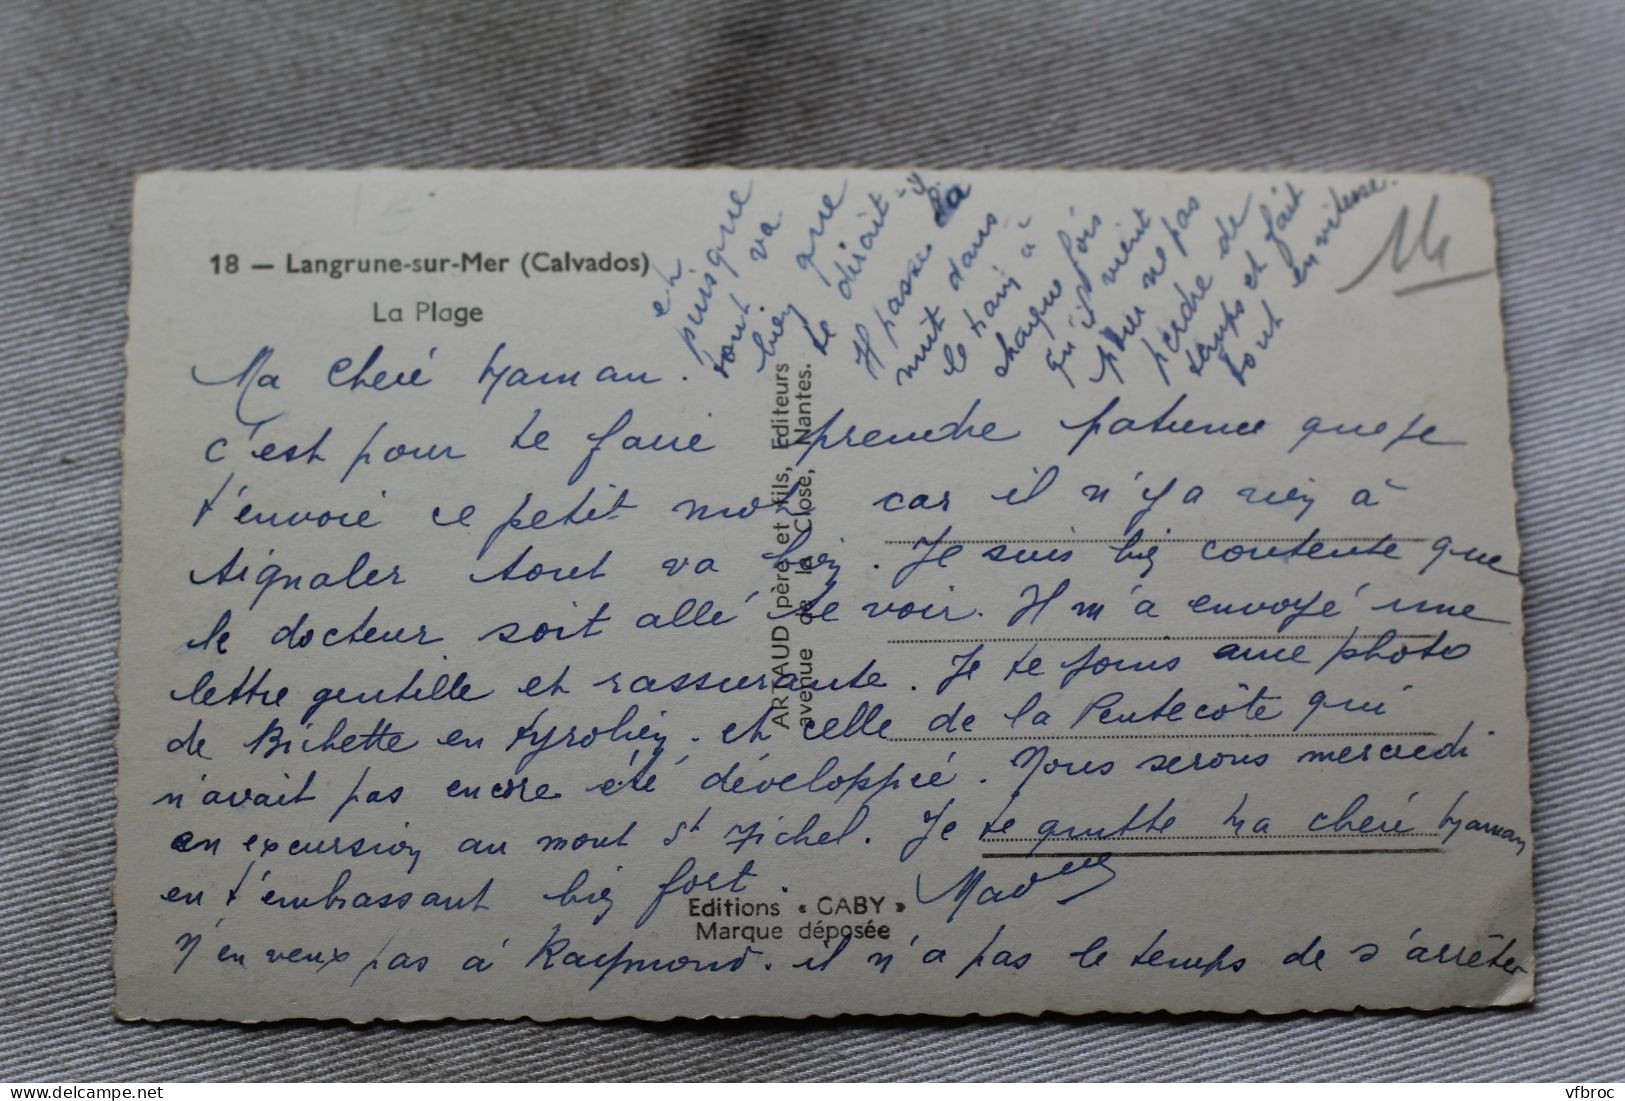 18 — Langrune-sur-Mer (Calvados)
La Plage
14
Ma cherie Maman.
c'est pour te faire prendre patience que je
t'envoie ce petit mot car il n'y a rien à
signaler tout va bien. Je suis bien contente que
le docteur soit allé te voir. Il m'a envoyé une
lettre gentille et rassurante. Je te joins une photo
de Bichette en tyrolien. et celle de la Pentecôte qui
n'avait pas encore été développée. Nous serons mercredi
en excursion au mont St Michel. Je te quitte Ma cherie Maman
en t'embrassant bien fort.
N'en veux pas à Raymond. il n'a pas le temps de s'arrêter
et
puisque
tout va
bien que
te dirait-il
Il passe sa
nuit dans
le train à
chaque fois
qu'il vient
pour ne pas
perdre de
temps et fait
tout en vitesse.
ARTAUD père et fils, Editeurs
avenue de la Close, Nantes.
Editions « GABY »
Marque déposée
vfbroc